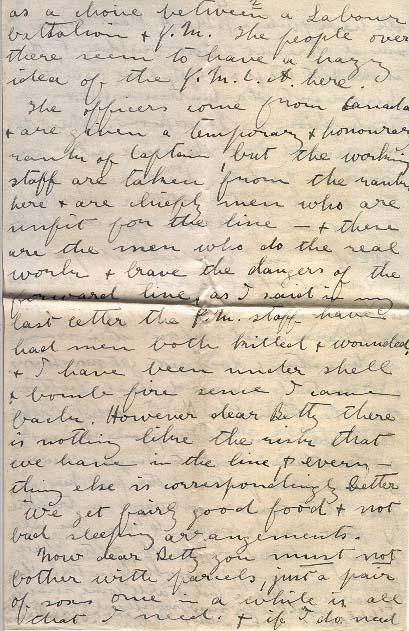 as a choice between a Labour
battalion & Y.M. The people over
there seem to have a hazy
idea of the Y.M.C.A. here.
The officers come from Canada
& are given a temporary & honourary
rank of Captain, but the working
staff are taken from the ranks
here & are chiefly men who are
unfit for the line – & these
are the men who do the real
work & brave the dangers of the
forward line, as I said in my
last letter the Y.M. staff have
had men both killed & wounded,
& I have been under shell
& bomb fire sence I came
back. However dear Betty there
is nothing like the risk that
we have in the line & every-
thing else is correspondingly better
We get fairly good food & not
bad sleeping arrangements.
Now dear Betty you must not
bother with parcels, just a pair
of soxs once in a while is all
that I need. & if I do need